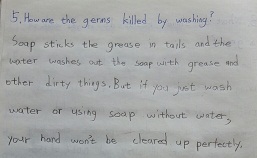 5, How are the germs killed by washing?
Soap sticks the grease in tails and the
water washes out the soap with grease and
other dirty things. But if you just wash
water or using soap without water,
your hand won't be cleared up perfectly.